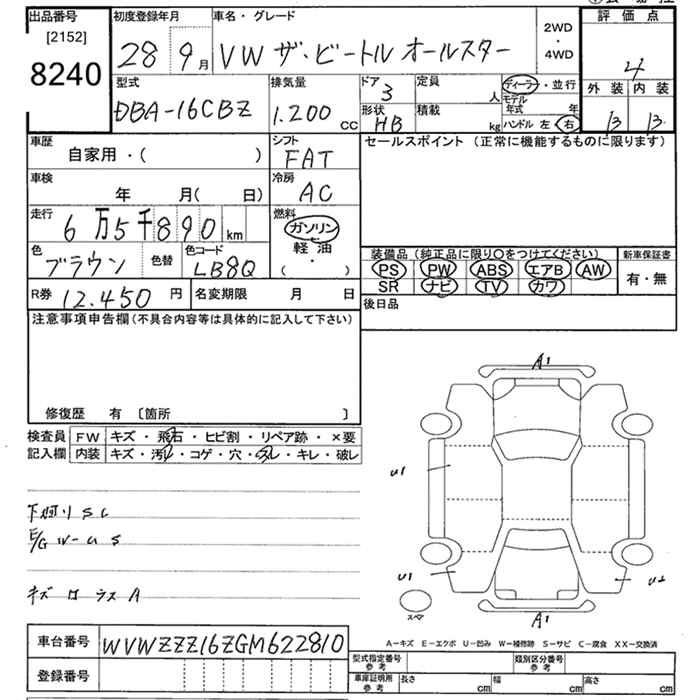 出品番号
[2152]
8240
初度登録年月
28 9月
車名・グレード
VW ザ・ビートル オールスター
2WD
・
4WD
評価点
4
外装 内装
B B
型式
DBA-16CBZ
排気量
1.200 cc
ドア
3
形状
HB
定員
人
積載
kg
ディーラー・並行
モデル年式 年
ハンドル 左 右
車歴
自家用・( )
シフト
FAT
セールスポイント (正常に機能するものに限ります)
車検
年 月( 日)
冷房
AC
走行
6万5千890 km
燃料
ガソリン
軽油
( ・ )
色
ブラウン
色替
色コード
LB8Q
装備品 (純正品に限り○をつけてください)
PS PW ABS エアB AW
SR ナビ TV カワ
新車保証書
有・無
R券 12.450 円
名変期限 月 日
後日品
注意事項申告欄(不具合内容等は具体的に記入して下さい)
修復歴 有 〔箇所 〕
検査員
記入欄
FW キズ・飛石・ヒビ割・リペア跡・×要
内装 キズ・汚レ・コゲ・穴・スレ・キレ・破レ
下廻り SC
E/G
キズ A
A1
U1
U1
U2
A1
スペア
A-キズ E-エクボ U-凹み W-補修跡 S-サビ C-腐食 XX-交換済
車台番号 WVWZZZ16ZGM622810
登録番号
型式指定番号
参考
類別区分番号
参考
車庫証明所
参考
長さ cm 幅 cm 高さ cm